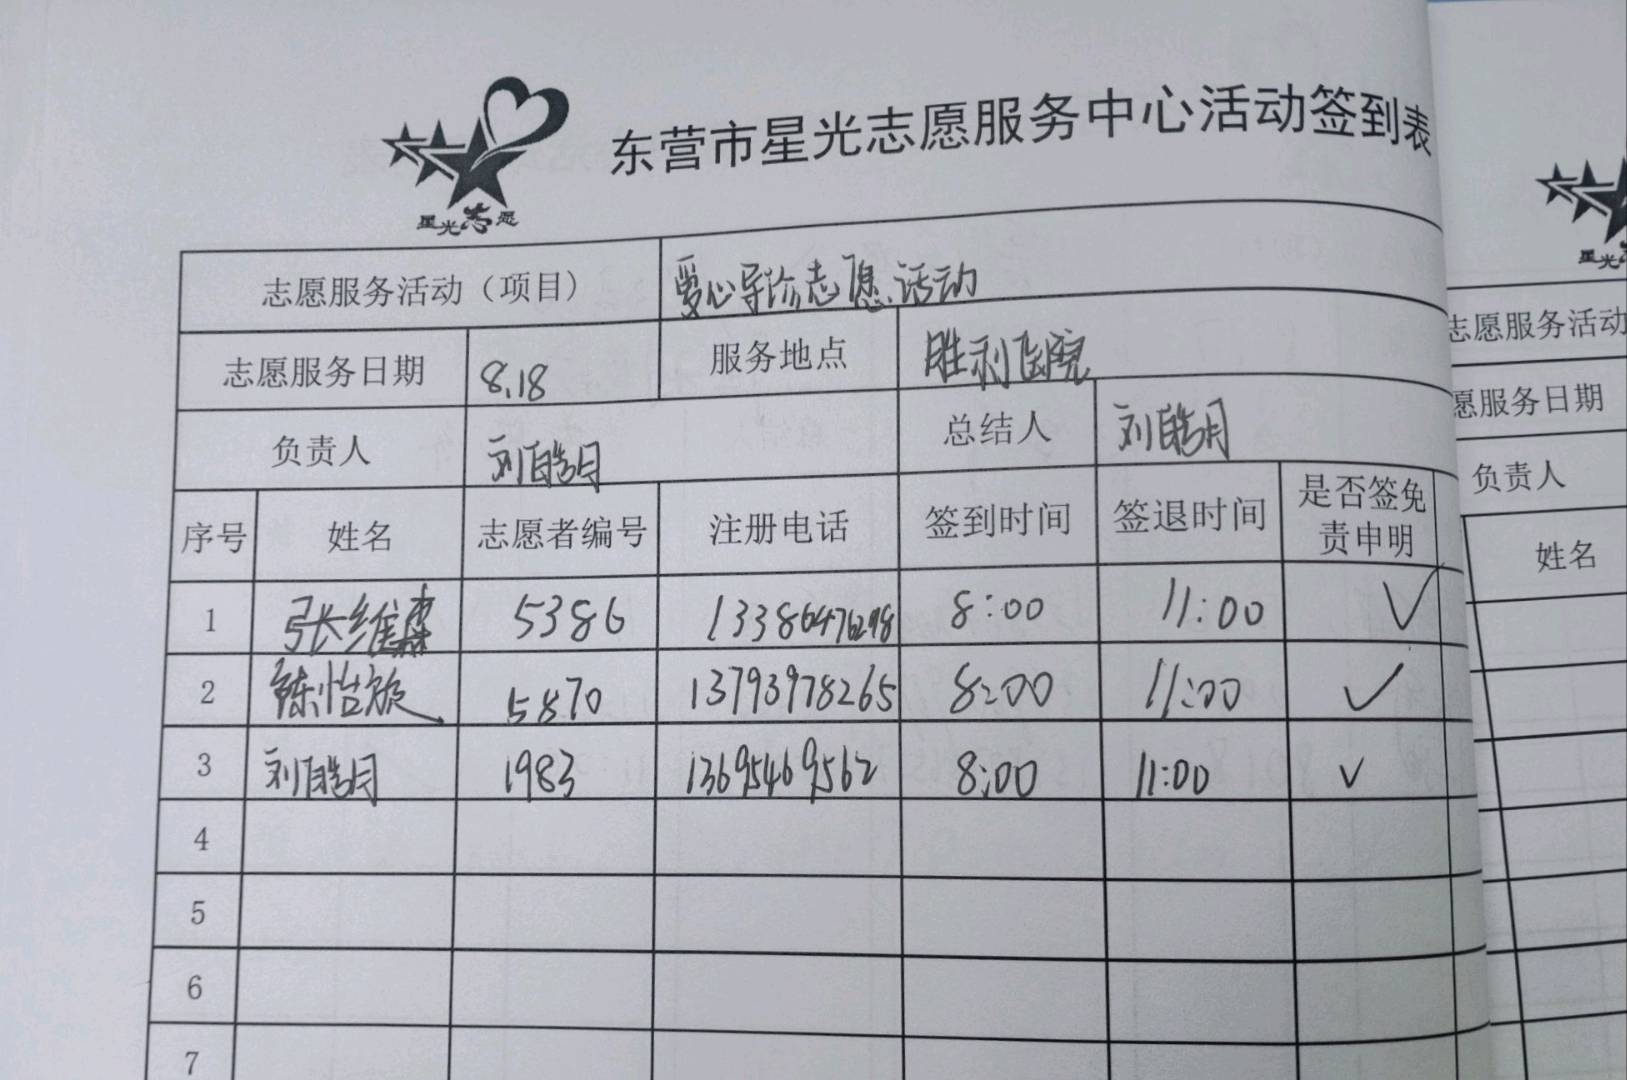 东营市星光志愿服务中心活动签到表
星光志愿
志愿服务活动（项目） 爱心导诊志愿活动
志愿服务日期 8.18 服务地点 胜利医院
负责人 刘皓月 总结人 刘皓月
序号 姓名 志愿者编号 注册电话 签到时间 签退时间 是否签免责申明
1 张维森 5386 13386476298 8:00 11:00 ✓
2 陈怡欣 5870 13793978265 8:00 11:00 ✓
3 刘皓月 1983 13695469562 8:00 11:00 ✓
4
5
6
7
星光
志愿服务活动
愿服务日期
负责人
姓名